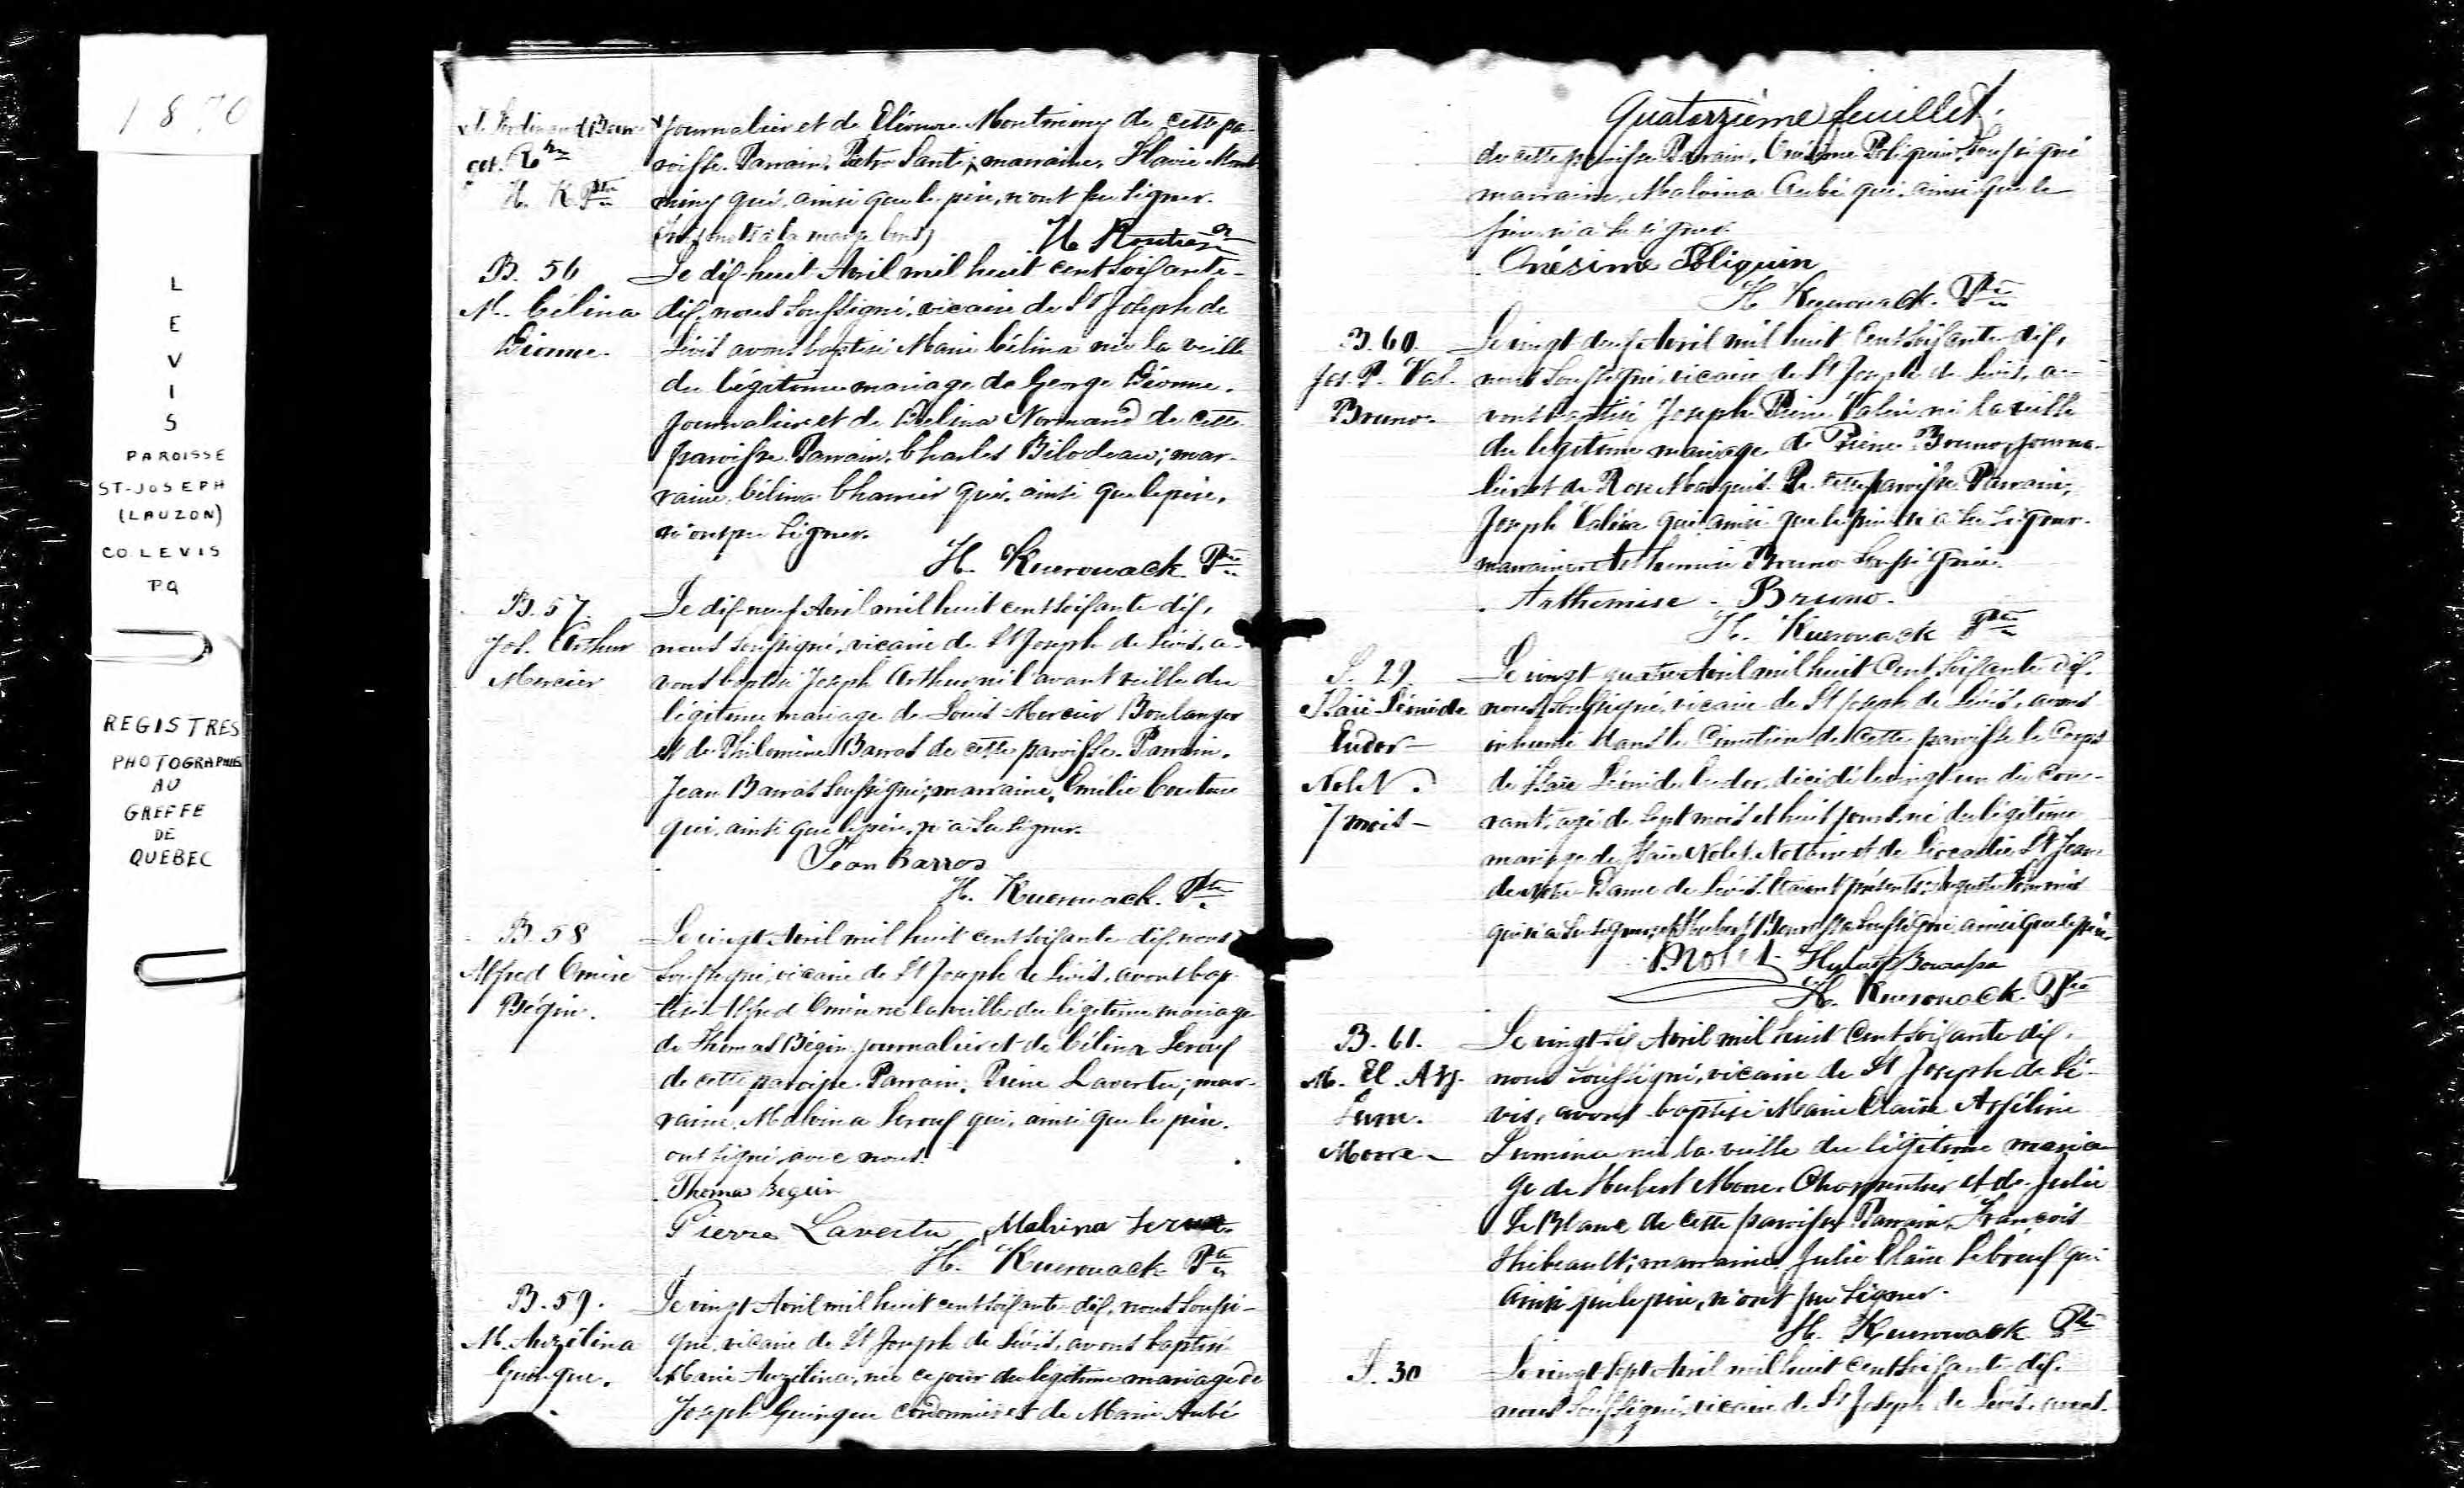 1870
LEVIS
PAROISSE
ST-JOSEPH
(LAUZON)
CO LEVIS
PQ
REGISTRES
PHOTOGRAPHIÉS
AU
GREFFE
DE
QUEBEC
journalier et de Eléonore Montminy de cette pa-
roisse. Parrain, Pietro Santi; marraine, Flavie Mont
miny qui, ainsi que le père, n'ont su signer.
H. K. Ptre
B. 56
M. Célina
Dionne.
Le dix-huit Avril mil huit cent soixante-
dix, nous soussigné, vicaire de St Joseph de
Lévis avons baptisé Marie Célina née la veille
du légitime mariage de George Dionne,
journalier et de Délina Normand de cette
paroisse. Parrain, Charles Bilodeau; mar-
raine, Célina Charrier qui, ainsi que le père,
n'ont pu signer.
H. Kuerouack Ptre
B. 57.
Jos. Arthur
Mercier
Le dix-neuf Avril mil huit cent soixante dix,
nous soussigné, vicaire de St Joseph de Lévis, a-
vons baptisé Joseph Arthur né l'avant veille du
légitime mariage de Louis Mercier Boulanger
et de Philomène Barras de cette paroisse. Parrain,
Jean Barras soussigné; marraine, Emélie Couture
qui, ainsi que le père, n'a su signer.
Jean Barras
H. Kuerouack. Ptre
B. 58
Alfred Omère
Bégin.
Le vingt Avril mil huit cent soixante dix, nous
soussigné, vicaire de St Joseph de Lévis, avons bap-
tisé Alfred Omère né la veille du légitime mariage
de Thomas Bégin journalier et de Célina Leroux
de cette paroisse. Parrain, Pierre Lavertu; mar-
raine, Malvina Leroux qui, ainsi que le père,
ont signé avec nous.
Thomas Begin
Pierre Lavertu Malvina
H. Kuerouack Ptre
B. 59.
M. Auzélina
Guingue.
Le vingt Avril mil huit cent soixante dix, nous soussi-
gné, vicaire de St Joseph de Lévis, avons baptisé
Marie Auzélina, née ce jour du légitime mariage de
Joseph Guingue cordonnier et de Marie Aubé
Quatorzième feuillet.
de cette paroisse Parrain, Onésime Poliquin, soussigné
marraine, Malvina Aubé qui, ainsi que le
père n'a su signer.
Onésime Poliquin
H. Kuerouack. Ptre
B. 60.
Jos. P. Val.
Bruno.
Le vingt deux Avril mil huit cent soixante dix,
nous soussigné, vicaire de St Joseph de Lévis, a-
vons baptisé Joseph Pierre Valère né la veille
du légitime mariage de Pierre Bruno, journa-
lier et de Rose Marquis de cette paroisse. Parrain,
Joseph Valère qui, ainsi que le père n'a su signer.
marraine Arthemise Bruno soussignée.
Arthemise Bruno.
H. Kuerouack Ptre
S. 29.
Isaïe Léonide
Eudor
Nolet.
7 mois
Le vingt quatre Avril mil huit cent soixante dix,
nous soussigné, vicaire de St Joseph de Lévis, avons
inhumé dans le Cimetière de cette paroisse le Corps
de Isaïe Léonide Eudor, décédé le vingt un du cou-
rant, âgé de sept mois et huit jours, né du légitime
mariage de Isaïe Nolet Notaire et de Léocadie St Jean
de Notre-Dame de Lévis. Etaient présents:
qui n'a su signer, et Hubert Bourassa soussigné, ainsi que le père
Nolet Bourassa
H. Kuerouack. Ptre
B. 61.
M. Cl. Arz.
Lum.
Moore
Le vingt-six Avril mil huit cent soixante dix,
nous soussigné, vicaire de St Joseph de Lé-
vis, avons baptisé Marie Claire Arzéline
Lumina née la veille du légitime maria-
ge de Hubert Moore, Charpentier et de Julie
Le Blanc de cette paroisse. Parrain, François
Thibeault; marraine, Julie Claire Lebœuf qui
ainsi que le père, n'ont pu signer.
H. Kuerouack Ptre
S. 30
Le vingt-sept Avril mil huit cent soixante dix,
nous soussigné, vicaire de St Joseph de Lévis, avons